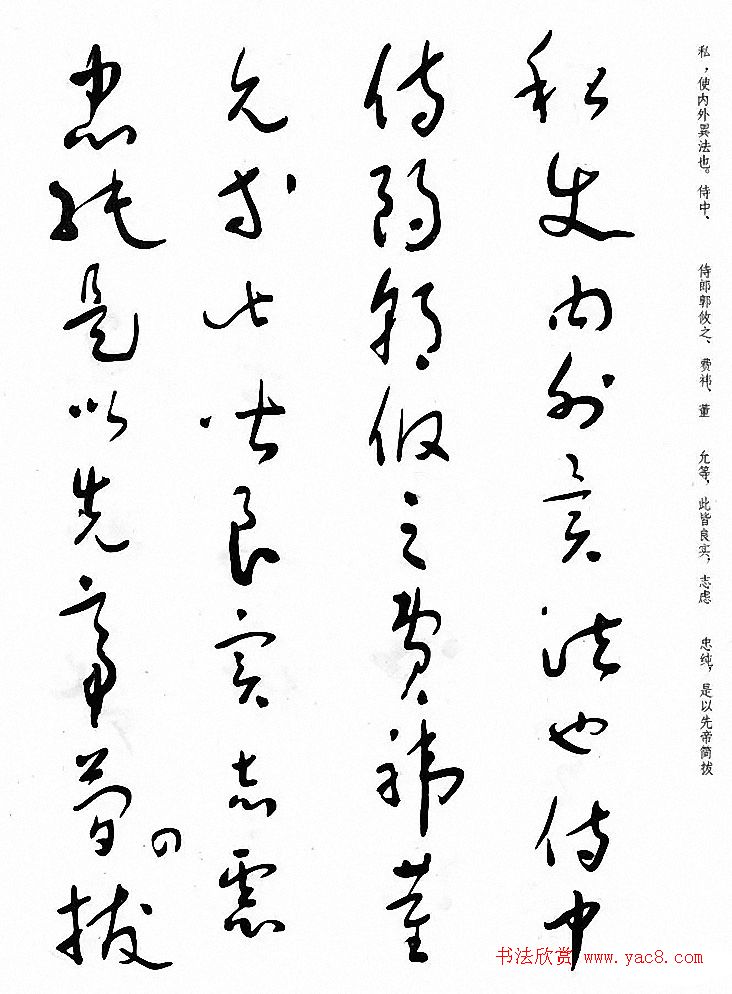 私，使内外異法也。侍中、侍郎郭攸之、费祎、董允等，此皆良实，志虑忠纯，是以先帝简拔
私使内外異法也侍中
侍郎郭攸之費禕董
允等此皆良實志慮
忠純是以先帝簡拔
书法欣赏 www.yac8.com